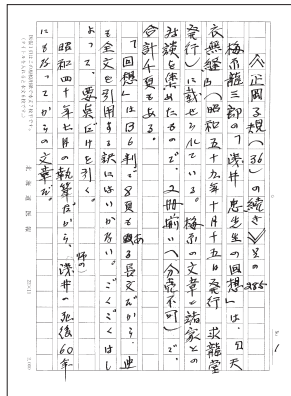 《正岡子規(36)》の続き
梅原龍三郎の「浅井 忠先生の回想」は、『天
衣無縫』(昭和五十九年十月十五日発行 求龍堂
発行)に載せられている。梅原の文章と諸家との
対談を集めたもので、2冊揃い(分売不可)で、
合計千頁もある。
「回想」はB6判で8頁もある長文だから、迚
も全文を引用する訳にはいかない。ごくごくはし
よって、要点だけを引く。
昭和四十年七月の執筆だから、浅井師の死後60年
にもなってからの文章だ。
北海道医報